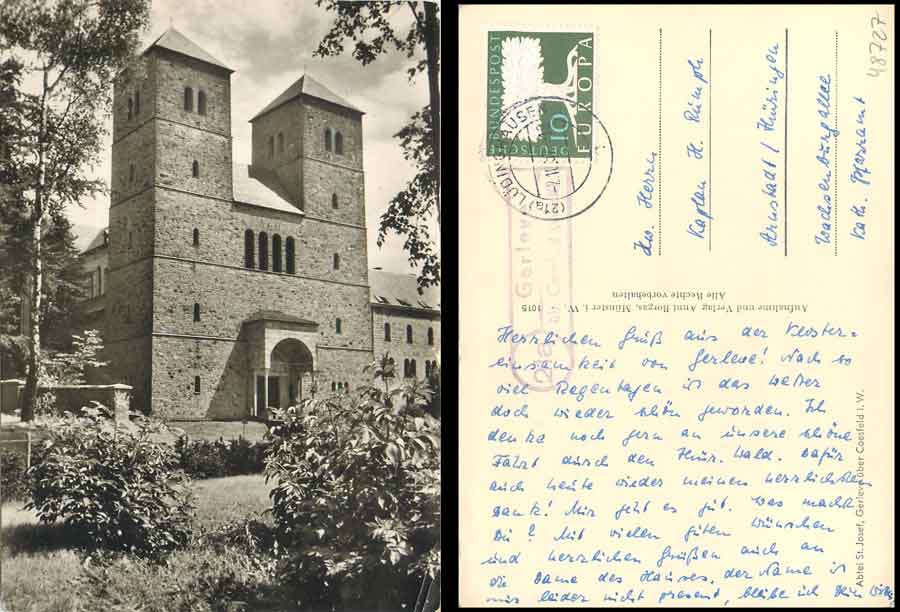 DEUTSCHE BUNDESPOST
10
EUROPA
(21a) LÜDINGHAUSEN
Gerleve
48727
Hw. Herrn
Kaplan H. Rümph
Arnstadt / Thüringen
Wachsenburgallee
Kath. Pfarramt
Aufnahme und Verlag Anni Borgas, Münster i. W. 1015
Alle Rechte vorbehalten
Herzlichen Gruß aus der Kloster=
einsamkeit von Gerleve! Nach so
viel Regentagen ist das Wetter
doch wieder schön geworden. Ich
denke noch gern an unsere schöne
Fahrt durch den Thür. Wald. Dafür
auch heute wieder meinen herzlichsten
Dank! Mir geht es gut. Was machst
Du? Mit vielen guten Wünschen
und herzlichen Grüßen auch an
die Dame des Hauses, der Name ist
mir leider nicht present, bleibe ich Dein
Abtei St. Josef, Gerleve über Coesfeld i. W.